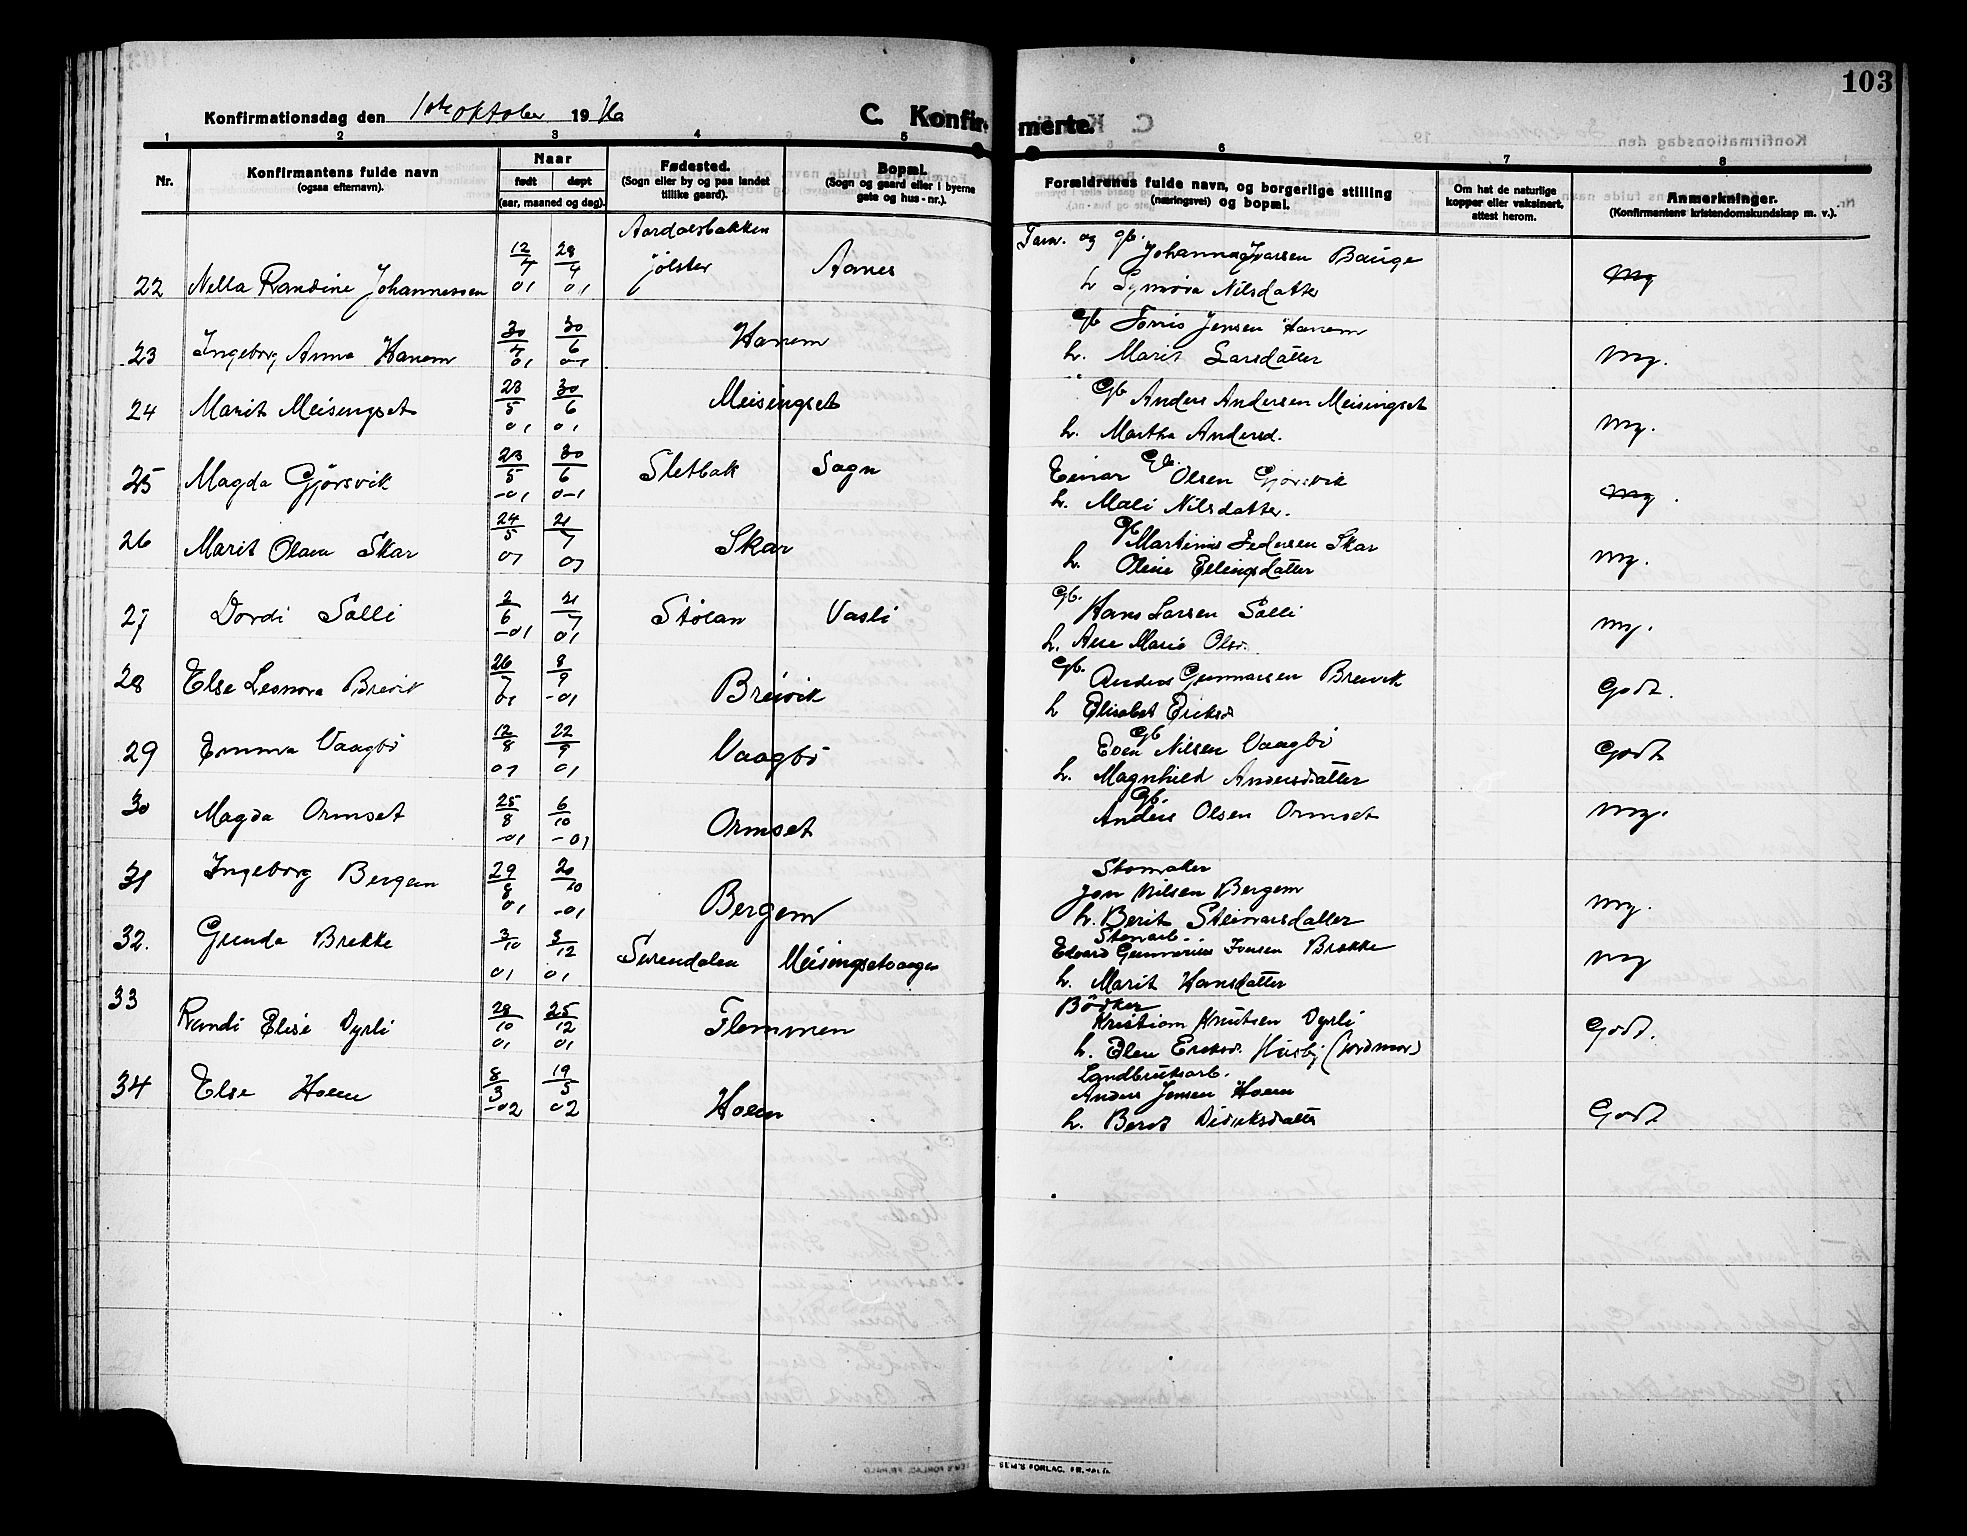 103
Konfirmationsdag den 1ste oktober 1916
C. Konfirmerte.
1 2 3 4 5 6 7 8
Nr.
Konfirmantens fulde navn
(ogsaa efternavn).
Naar
født døpt
(aar, maaned og dag).
Fødested.
(Sogn eller by og paa landet
tillike gaard).
Bopæl.
(Sogn og gaard eller i byerne
gate og hus-nr.).
Forældrenes fulde navn, og borgerlige stilling
(næringsvei) og bopæl.
Om hat de naturlige
kopper eller vaksinert,
attest herom.
Anmerkninger.
(Konfirmantens kristendomskundskap m. v.).
Aardalsbakken
22 Nella Randine Johannessen 12/4 01 28/4 01 Jølster Aanes
gb. Johannes Ivarsen Bauge
h Synnøva Nilsdatter
mg
23 Ingeborg Anna Hanem 30/4 01 30/6 01 Hanem
gb Tønis Jensen Hanem
h. Marit Larsdatter
mg.
24 Marit Meisingset 23/5 01 30/6 01 Meisingset
gb Anders Andersen Meisingset
h. Martha Andersd.
mg.
25 Magda Gjørsvik 23/5 -01 30/6 01 Sletbak Sogn
gb. Einar Olsen Gjørsvik
h. Mali Nilsdatter.
mg.
26 Marit Olava Skar 24/5 01 21/7 01 Skar
gb Martinus Pedersen Skar
h. Oline Ellingsdatter
mg.
27 Dordi Solli 2/6 -01 21/7 01 Stølan Vasli
gb. Hans Larsen Solli
h. Ane Marie Olsd.
mg.
28 Else Leonora Breivik 26/7 01 8/9 -01 Breivik
gb. Anders Gunnarsen Breivik
h Elisabet Eriksd
Godt.
29 Emma Vaagbø 12/8 01 22/9 01 Vaagbø
gb
Even Nilsen Vaagbø
h. Magnhild Andersdatter
Godt
30 Magda Ormset 25/8 -01 6/10 -01 Ormset
gb.
Anders Olsen Ormset
mg.
31 Ingeborg Bergem 29/8 01 20/10 -01 Bergem
Skomaker
Jon Nilsen Bergem
h. Berit Steinarsdatter
mg.
32. Gunda Brekke 3/10 01 3/12 01 Surendalen Meisingsetvaagen
Stenarb.
Edvard Gunnarius Jonsen Brekke
h. Marit Hansdatter
mg
33 Randi Elise Dyrli 28/10 01 25/12 01 Flemmen
Bødker
Kristian Knutsen Dyrli
h. Elen Eriksd. Husby (Jordmor)
Godt.
34 Else Hoem 8/3 -02 19/5 02 Hoem
Landbruksarb.
Anders Jensen Hoem
h. Berit Didriksdatter
Godt
SEM'S FORLAG, FR.HALD